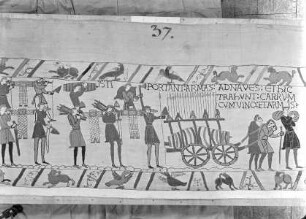 37.
ISTI PORTANT: ARMAS: AD NAVES: ET HIC
TRAHUNT: CARRUM
CUM VINO: ET ARMIS: